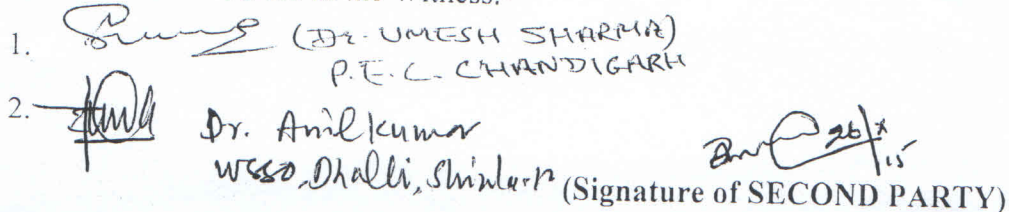 Witness.
1. (Dr. UMESH SHARMA)
P.E.C. CHANDIGARH
2. Dr. Anil Kumar
WSSO, Dhalli, Shimla-
26/x/15
(Signature of SECOND PARTY)